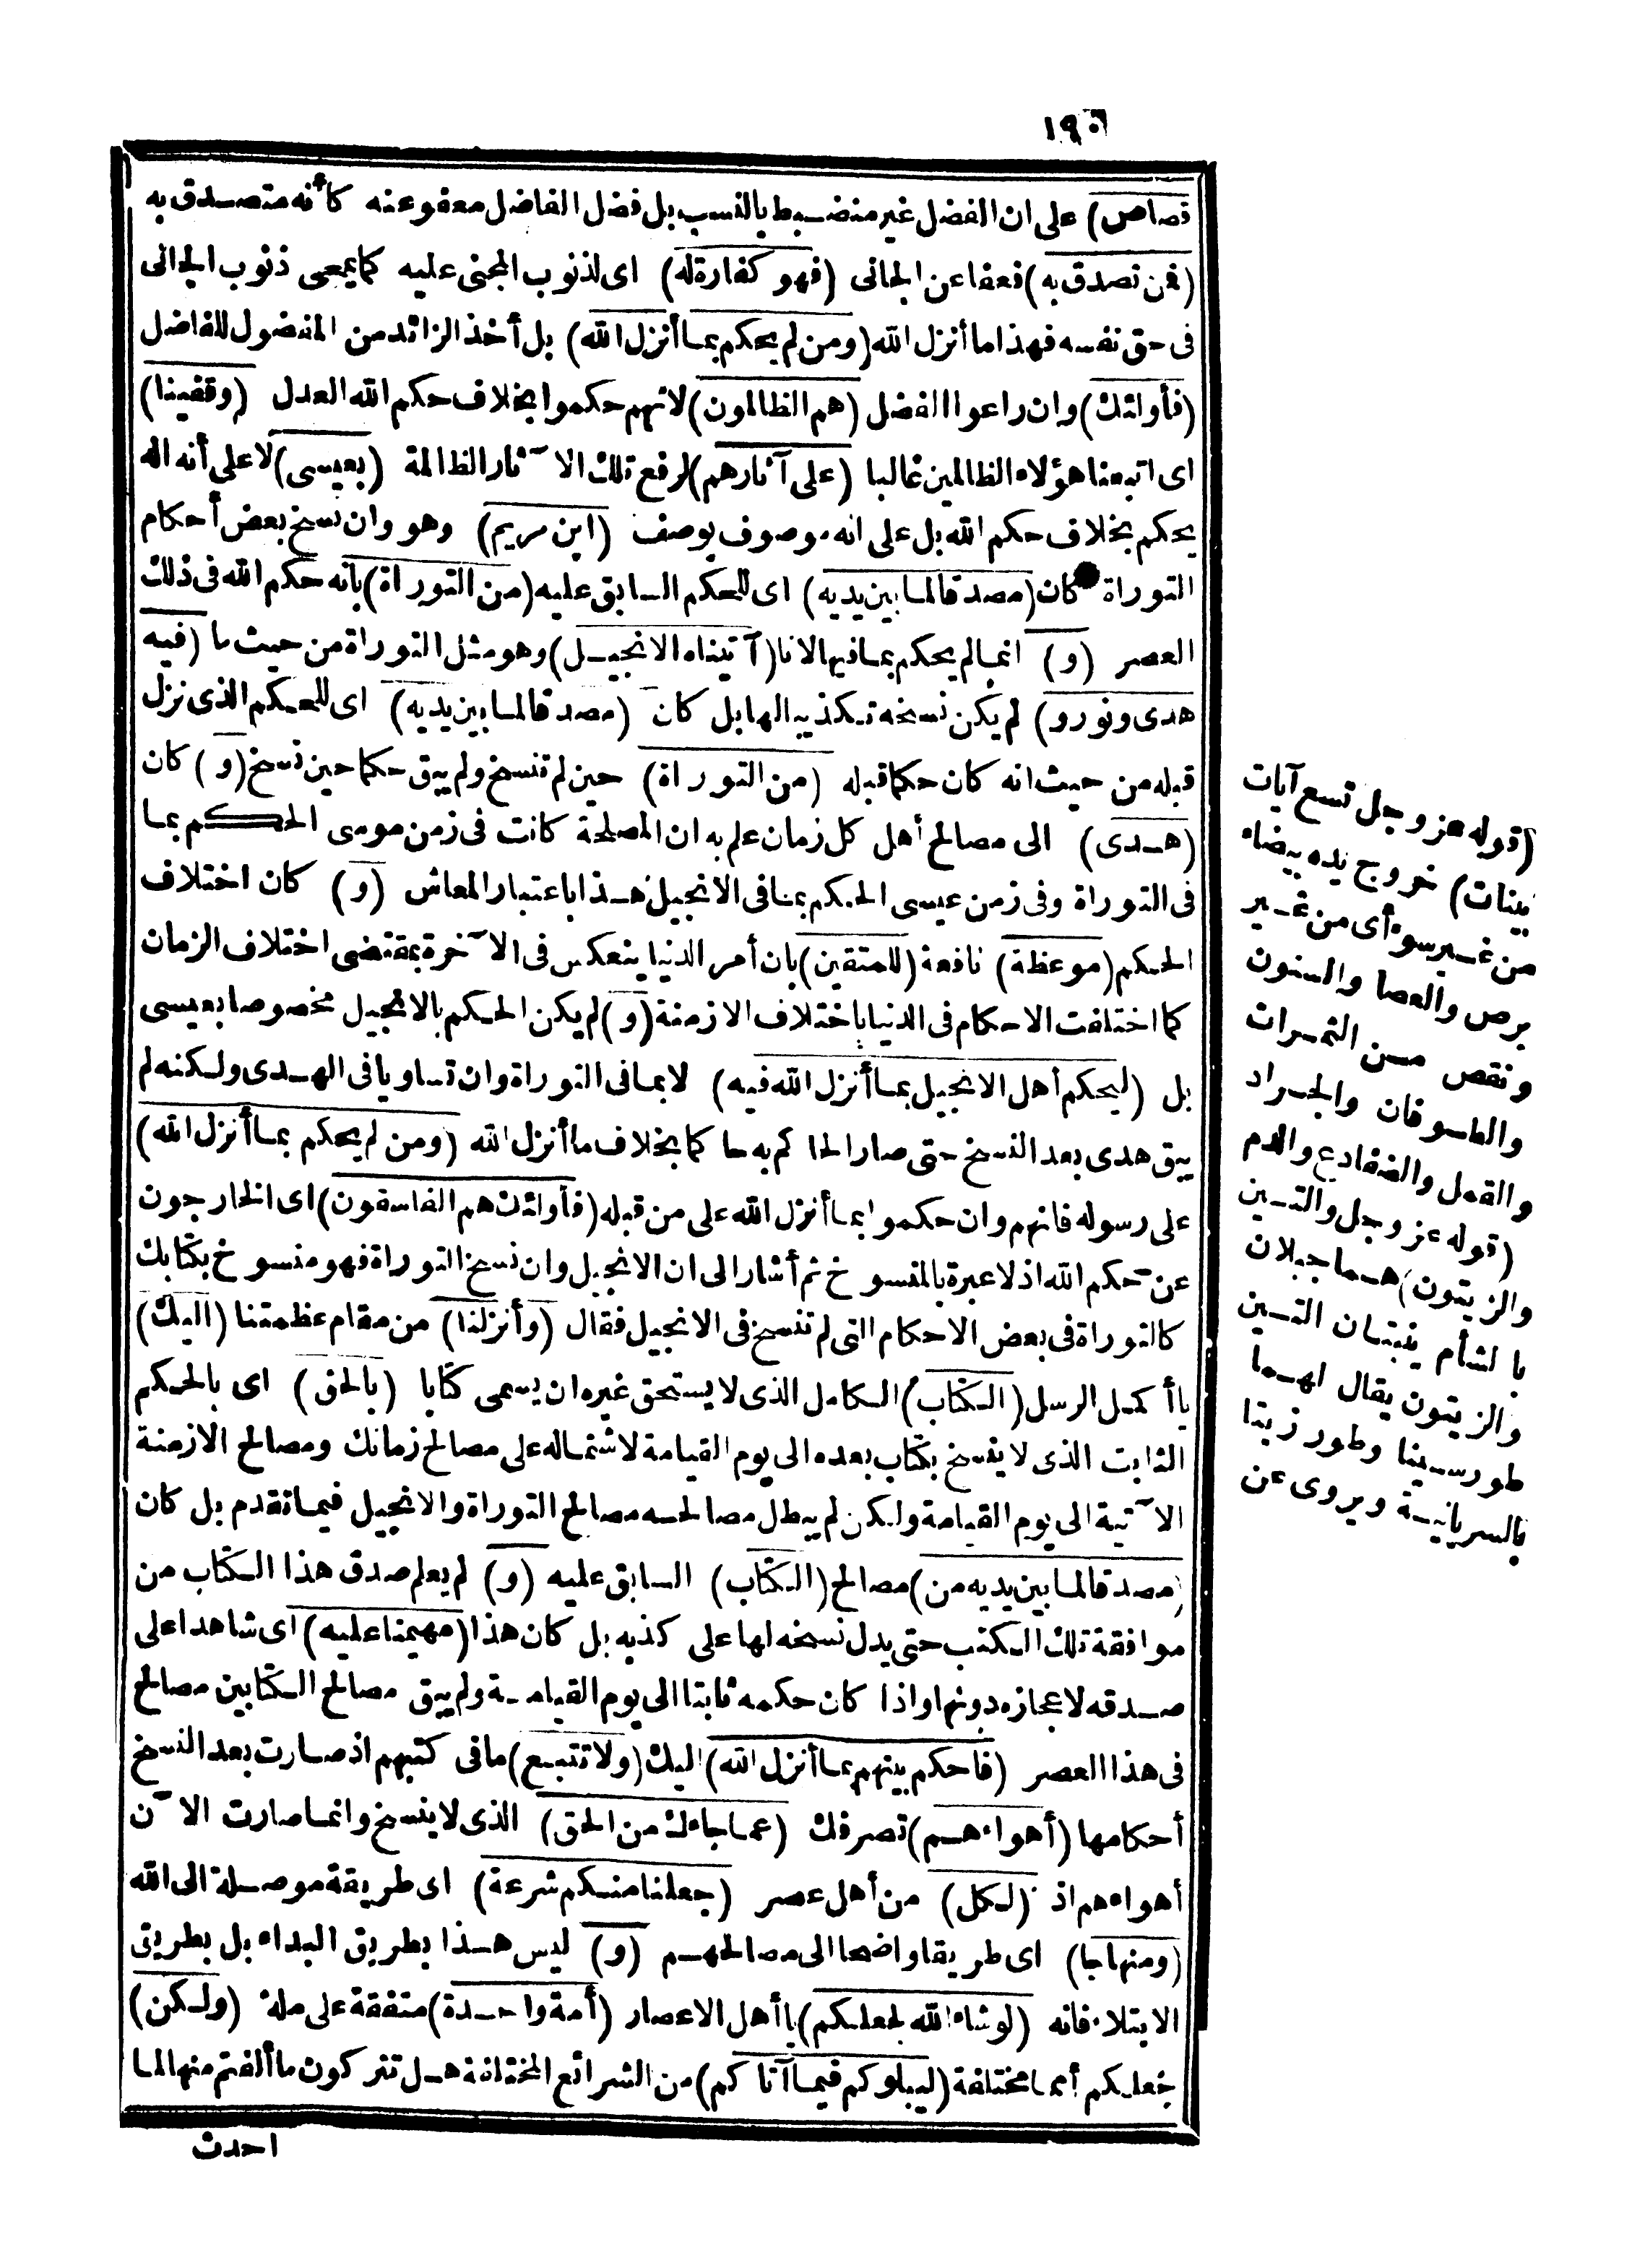 ١٩٠
قصاص) على ان الفضل غير منضبط بالنسب بل فضل الفاضل معفو عنه كأنه متصدق به
(فمن تصدق به) فعفا عن الجانى (فهو كفارة له) اى لذنوب المجنى عليه كما يمحى ذنوب الجانى
فى حق نفسه فهذا ما أنزل الله (ومن لم يحكم بما أنزل الله) بل أخذ الزائد من المفضول للفاضل
(فأولئك) وان راعوا الفضل (هم الظالمون) لانهم حكموا بخلاف حكم الله العدل (وقفينا)
اى اتبعنا هؤلاء الظالمين غالبا (على آثارهم) لرفع تلك الآثار الظالمة (بعيسى) لا على أنه اله
يحكم بخلاف حكم الله بل على انه موصوف بوصف (ابن مريم) وهو وان نسخ بعض أحكام
التوراة كان (مصدقا لما بين يديه) اى للحكم السابق عليه (من التوراة) بأنه حكم الله فى ذلك
العصر (و) انما لم يحكم بما فيها لانا (آتيناه الانجيل) وهو مثل التوراة من حيث ما (فيه
هدى ونور و) لم يكن نسخه تكذيبه لها بل كان (مصدقا لما بين يديه) اى للحكم الذى نزل
قبله من حيث انه كان حكما قبله (من التوراة) حين لم تنسخ ولم يبق حكما حين نسخ (و) كان
(هدى) الى مصالح أهل كل زمان علم به ان المصلحة كانت فى زمن موسى الحكم بما
فى التوراة وفى زمن عيسى الحكم بما فى الانجيل هذا باعتبار المعاش (و) كان اختلاف
الحكم (موعظة) نافعة (للمتقين) بان أمر الدنيا ينعكس فى الآخرة بمقتضى اختلاف الزمان
كما اختلفت الاحكام فى الدنيا باختلاف الازمنة (و) لم يكن الحكم بالانجيل مخصوصا بعيسى
بل (ليحكم أهل الانجيل بما أنزل الله فيه) لا بما فى التوراة وان تساويا فى الهدى ولكنه لم
يبق هدى بعد النسخ حتى صار الحاكم به حاكما بخلاف ما أنزل الله (ومن لم يحكم بما أنزل الله)
على رسوله فانهم وان حكموا بما أنزل الله على من قبله (فأولئك هم الفاسقون) اى الخارجون
عن حكم الله اذ لا عبرة بالمنسوخ ثم أشار الى ان الانجيل وان نسخ التوراة فهو منسوخ بكتابك
كالتوراة فى بعض الاحكام التى لم تنسخ فى الانجيل فقال (وأنزلنا) من مقام عظمتنا (اليك)
يا أكمل الرسل (الكتاب) الكامل الذى لا يستحق غيره ان يسمى كتابا (بالحق) اى بالحكم
الثابت الذى لا ينسخ بكتاب بعده الى يوم القيامة لاشتماله على مصالح زمانك ومصالح الازمنة
الآتية الى يوم القيامة ولكن لم يبطل مصالحه مصالح التوراة والانجيل فيما تقدم بل كان
(مصدقا لما بين يديه من) مصالح (الكتاب) السابق عليه (و) لم يعلم صدق هذا الكتاب من
موافقة تلك الكتب حتى يدل نسخه لها على كذبه بل كان هذا (مهيمنا عليه) اى شاهدا على
صدقه لاعجازه دونها واذا كان حكمه ثابتا الى يوم القيامة ولم يبق مصالح الكتابين مصالح
فى هذا العصر (فاحكم بينهم بما أنزل الله) اليك (ولا تتبع) ما فى كتبهم اذ صارت بعد النسخ
أحكامها (أهواءهم) تصرفك (عما جاءك من الحق) الذى لا ينسخ وانما صارت الآن
أهواءهم اذ (لكل) من أهل عصر (جعلنا منكم شرعة) اى طريقة موصلة الى الله
(ومنهاجا) اى طريقا واضحا الى مصالحهم (و) ليس هذا بطريق البداء بل بطريق
الابتلاء فانه (لو شاء الله لجعلكم) يا أهل الاعصار (أمة واحدة) متفقة على ملة (ولكن)
جعلكم أمما مختلفة (ليبلوكم فيما آتاكم) من الشرائع المختلفة هل تتركون ما ألفتم منها لما
احدث
(قوله عز وجل تسع آيات
بينات) خروج يده بيضاء
من غير سوء أى من غير
برص والعصا والسنون
ونقص من الثمرات
والطوفان والجراد
والقمل والضفادع والدم
(قوله عز وجل والتين
والزيتون) هما جبلان
بالشأم ينبتان التين
والزيتون يقال لهما
طور سينا وطور زيتا
بالسريانية ويروى عن